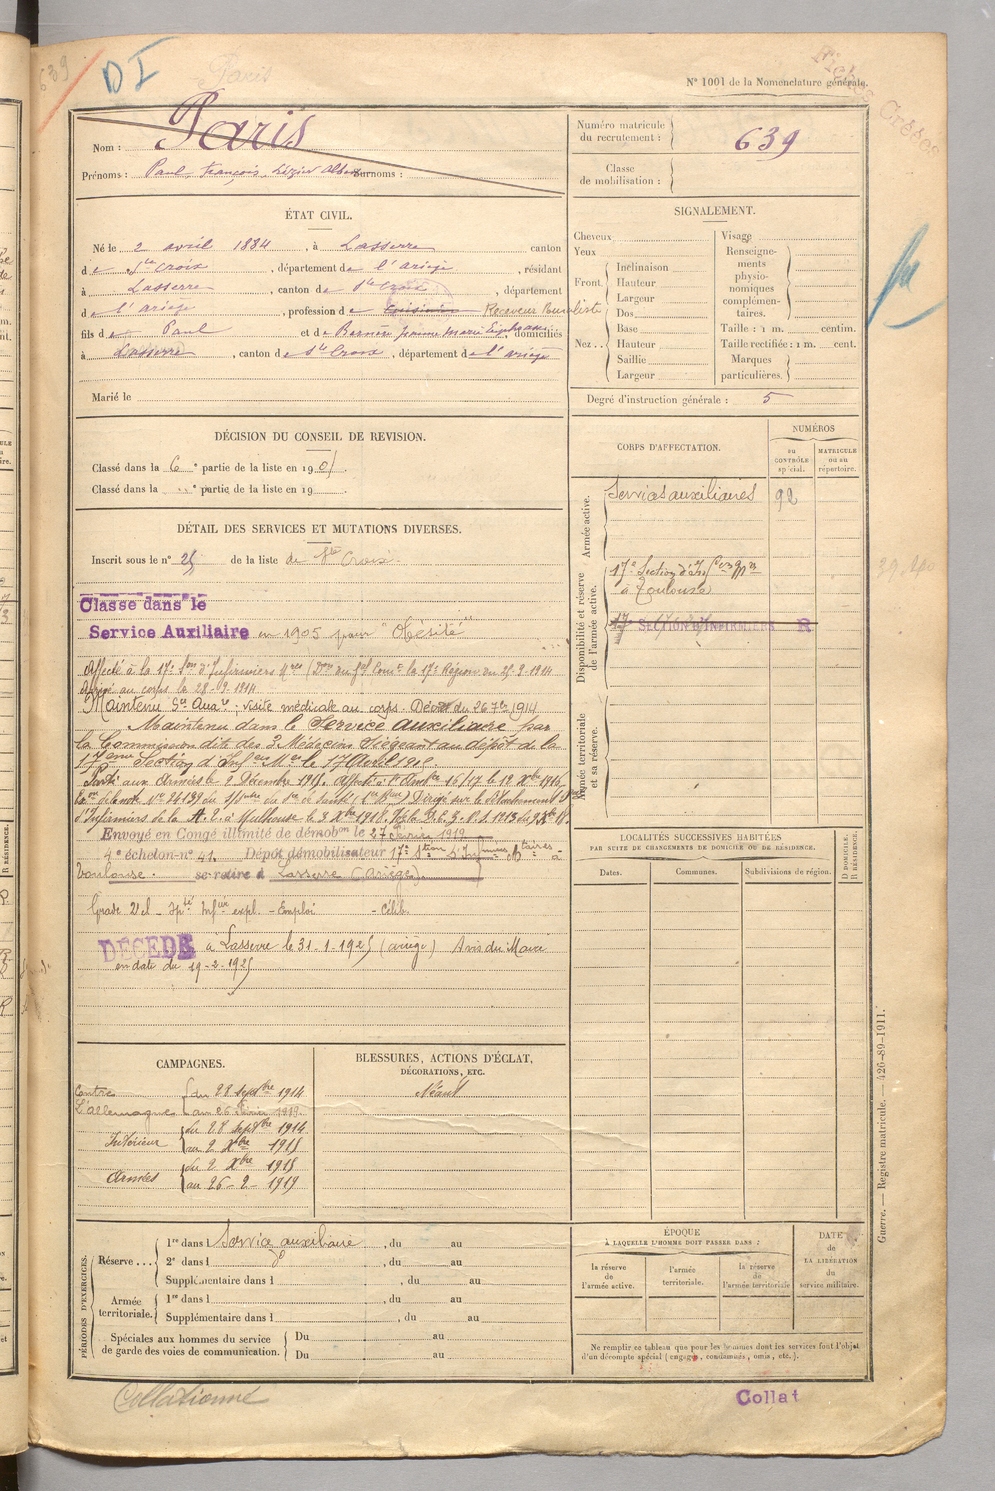 639
DI
Paris
N° 1001 de la Nomenclature générale.
Nom : Paris
Prénoms : Paul, François, Lizier Albert Surnoms :
Numéro matricule du recrutement : 639
Classe de mobilisation :
ÉTAT CIVIL.
Né le 2 avril 1884, à Lasserre canton
de Ste Croix, département de l'ariège, résidant
à Lasserre, canton de Ste Croix, département
de l'ariège, profession de Cuisinier Receveur Buraliste
fils de Paul et de Bernère Jeanne Marie Euphrasie, domiciliés
à Lasserre, canton de Ste Croix, département de l'ariège
Marié le
SIGNALEMENT.
Cheveux
Yeux
Front. Inclinaison
Hauteur
Largeur
Nez .. Dos
Base
Hauteur
Saillie
Largeur
Visage
Renseignements physionomiques complémentaires.
Taille : 1 m. centim.
Taille rectifiée : 1 m. cent.
Marques particulières.
Degré d'instruction générale : 5
DÉCISION DU CONSEIL DE REVISION.
Classé dans la 6e partie de la liste en 1905.
Classé dans la e partie de la liste en 19
DÉTAIL DES SERVICES ET MUTATIONS DIVERSES.
Inscrit sous le n° 25 de la liste de Ste Croix.
Classé dans le
Service Auxiliaire en 1905 pour "Obésité"
Affecté à la 17e Son d'Infirmiers Mres (Don du Gal Comt la 17e Région du 25-9-1914
Arrivé au corps le 28-9-1914
Maintenu Sce Auxre ; visite médicale au corps. Décret du 26 7bre 1914
Maintenu dans le Service auxiliaire par
la Commission dite des 3 Médecins Siégeant au dépôt de la
17eme Section d'Infers Mres le 17 Avril 1915.
Parti aux Armées le 2 Décembre 1915. Affecté à l'Ambce 16/17 le 12 Xbre 1916.
d'Infirmiers de la A. 2. à Mulhouse le 3 Xbre 1918.
Envoyé en Congé illimité de démobon le 27 février 1919
4e échelon-n° 41. Dépôt démobilisateur 17e Stion d'Infirmiers Mtaires à
Toulouse. se retire à Lasserre (Ariège).
Grade 2e cl - Emploi - Célib.
DÉCÉDÉ à Lasserre le 31-1-1925 (ariège) Avis du Maire
en date du 19-2-1925
CORPS D'AFFECTATION.
NUMÉROS
au CONTRÔLE spécial.
MATRICULE ou au répertoire.
Armée active.
Services auxiliaires 92
Disponibilité et réserve de l'armée active.
17e Section d'Infers Mres
à Toulouse
17e SECTION D'INFIRMIERS R
Armée territoriale et sa réserve.
LOCALITÉS SUCCESSIVES HABITÉES
PAR SUITE DE CHANGEMENTS DE DOMICILE OU DE RÉSIDENCE.
Dates. Communes. Subdivisions de région. D DOMICILE. R RÉSIDENCE.
CAMPAGNES.
Contre du 28 septbre 1914
L'allemagne au 26 février 1919.
Intérieur du 28 septbre 1914
au 2 Xbre 1915
Armées du 2 Xbre 1915
au 26-2-1919
BLESSURES, ACTIONS D'ÉCLAT,
DÉCORATIONS, ETC.
Néant
PÉRIODES D'EXERCICES.
Réserve ... 1re dans l Service auxiliaire, du au
2e dans l do, du au
Supplémentaire dans l , du au
Armée territoriale. 1re dans l , du au
Supplémentaire dans l , du au
Spéciales aux hommes du service de garde des voies de communication. Du au
Du au
ÉPOQUE
À LAQUELLE L'HOMME DOIT PASSER DANS :
la réserve de l'armée active.
l'armée territoriale.
la réserve de l'armée territoriale
DATE
de
LA LIBÉRATION
du
service militaire.
Ne remplir ce tableau que pour les hommes dont les services font l'objet
d'un décompte spécial (engagés, condamnés, omis, etc.).
Guerre. — Registre matricule. — 426-89-1911.
Collationné
Collat